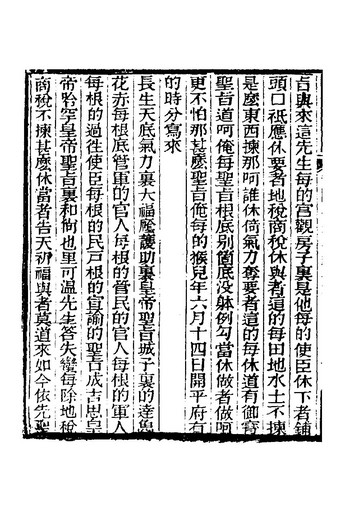 旨與來這先生每的宮觀房子裏是他每的使臣休下者鋪
頭口祗應休要者地稅商稅休與者這的每田地水土不揀
是麼東西揀那誰休倚氣力奪要者這的每休道有御寳
聖旨道呵俺每聖旨根底别箇底没躰例勾當休做者做呵
更不怕那甚麽聖旨俺每的猴兒年六月十四日開平府有
的時分寫來
長生天底氣力裏大福廕護助裏皇帝聖旨城子裏的達魯
花赤每根底管軍的官人每根的管民的官人每根的軍人
每根的過徃使臣每根的民戶根的宣諭的聖旨成吉思皇
帝哈罕皇帝聖旨裏和尚也里可温先生答失蠻每除地稅
商稅不揀甚麽休當者告天祈福與者莫道來如今依先聖